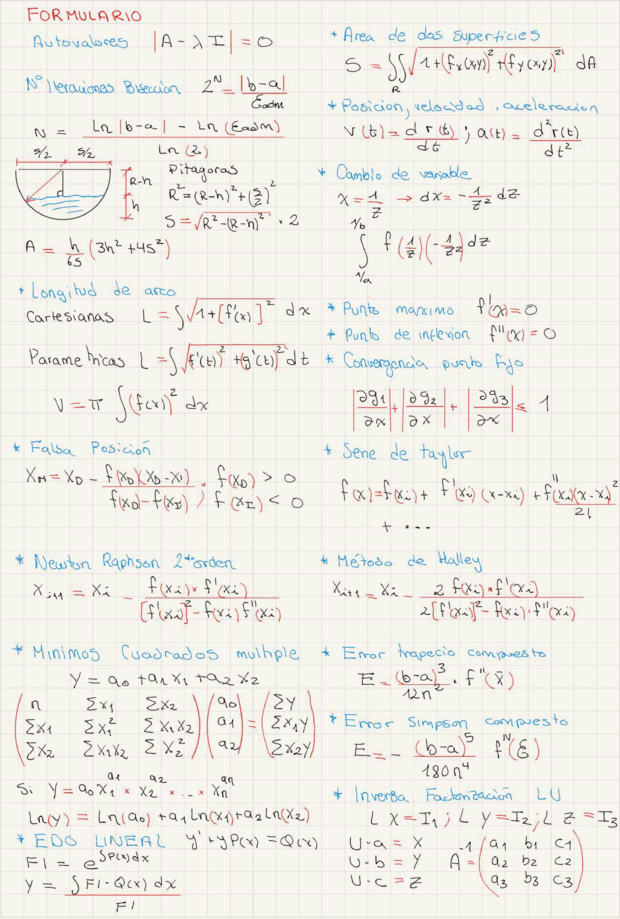 FORMULARIO
Autovalores |A - λI| = 0
Nº Iteraciones Biseccion 2^N = |b-a| / Eadm
N = (Ln|b-a| - Ln(Eadm)) / Ln(2)
S/2 S/2
R-h
h
Pitagoras
R² = (R-h)² + (S/2)²
S = √(R² - (R-h)²) · 2
A = h/6S (3h² + 4S²)
* Longitud de arco
Cartesianas L = ∫√(1+[f'(x)]²) dx
Parametricas L = ∫√(f'(t)² + (g'(t))²) dt
V = π ∫(f(x))² dx
* Falsa Posición
X_M = X_D - f(X_D)(X_D - X_I) / (f(X_D) - f(X_I)) ; f(X_D) > 0
f(X_I) < 0
* Newton Raphson 2do orden
X_i+1 = X_i - f(x_i) * f'(x_i) / ([f'(x_i)]² - f(x_i) f''(x_i))
* Minimos Cuadrados multiple
Y = a0 + a1 x1 + a2 x2
(n Σx1 Σx2) (a0) (ΣY)
(Σx1 Σx1² Σx1x2) (a1) = (Σx1Y)
(Σx2 Σx1x2 Σx2²) (a2) (Σx2Y)
Si Y = a0 x1^a1 * x2^a2 * ... * xn^an
Ln(Y) = Ln(a0) + a1 Ln(x1) + a2 Ln(x2)
* EDO LINEAL y' + yP(x) = Q(x)
FI = e^∫P(x)dx
Y = ∫FI · Q(x) dx / FI
* Area de dos superficies
S = ∬_R √(1 + (fx(x,y))² + (fy(x,y))²) dA
* Posicion, velocidad, aceleracion
V(t) = d r(t) / dt ; a(t) = d² r(t) / dt²
* Cambio de variable
x = 1/z → dx = -1/z² dz
∫_{1/a}^{1/b} f(1/z)(-1/z²) dz
* Punto maximo f'(x) = 0
* Punto de inflexion f''(x) = 0
* Convergencia punto fijo
|∂g1/∂x| + |∂g2/∂x| + |∂g3/∂x| ≤ 1
* Serie de taylor
f(x) = f(xi) + f'(xi)(x-xi) + f''(xi)(x-xi)² / 2!
+ ...
* Método de Halley
X_i+1 = X_i - 2 f(xi) * f'(xi) / (2[f'(xi)]² - f(xi) · f''(xi))
* Error trapecio compuesto
E = (b-a)³ / 12n² · f''(x̄)
* Error Simpson compuesto
E = - (b-a)⁵ / 180n⁴ f^IV(ξ)
* Inversa Factorización LU
L X = I1 ; L Y = I2 ; L Z = I3
U·a = X
U·b = Y A⁻¹ = (a1 b1 c1)
(a2 b2 c2)
U·c = Z (a3 b3 c3)